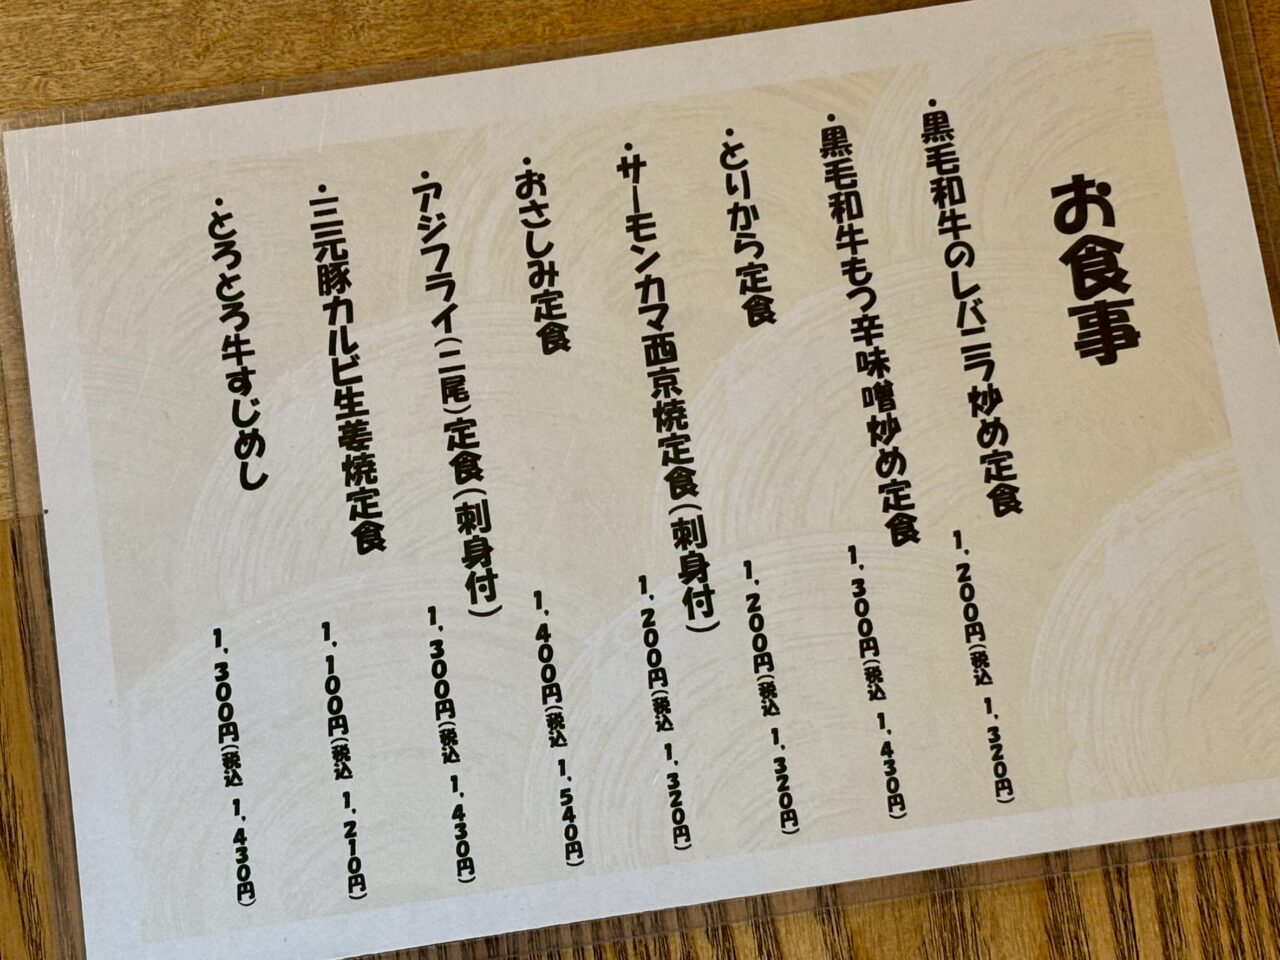 お食事
・黒毛和牛のレバニラ炒め定食 1,200円(税込 1,320円)
・黒毛和牛もつ辛味噌炒め定食 1,300円(税込 1,430円)
・とりから定食 1,200円(税込 1,320円)
・サーモンカマ西京焼定食(刺身付) 1,200円(税込 1,320円)
・おさしみ定食 1,400円(税込 1,540円)
・アジフライ(二尾)定食(刺身付) 1,300円(税込 1,430円)
・三元豚カルビ生姜焼定食 1,100円(税込 1,210円)
・とろとろ牛すじめし 1,300円(税込 1,430円)